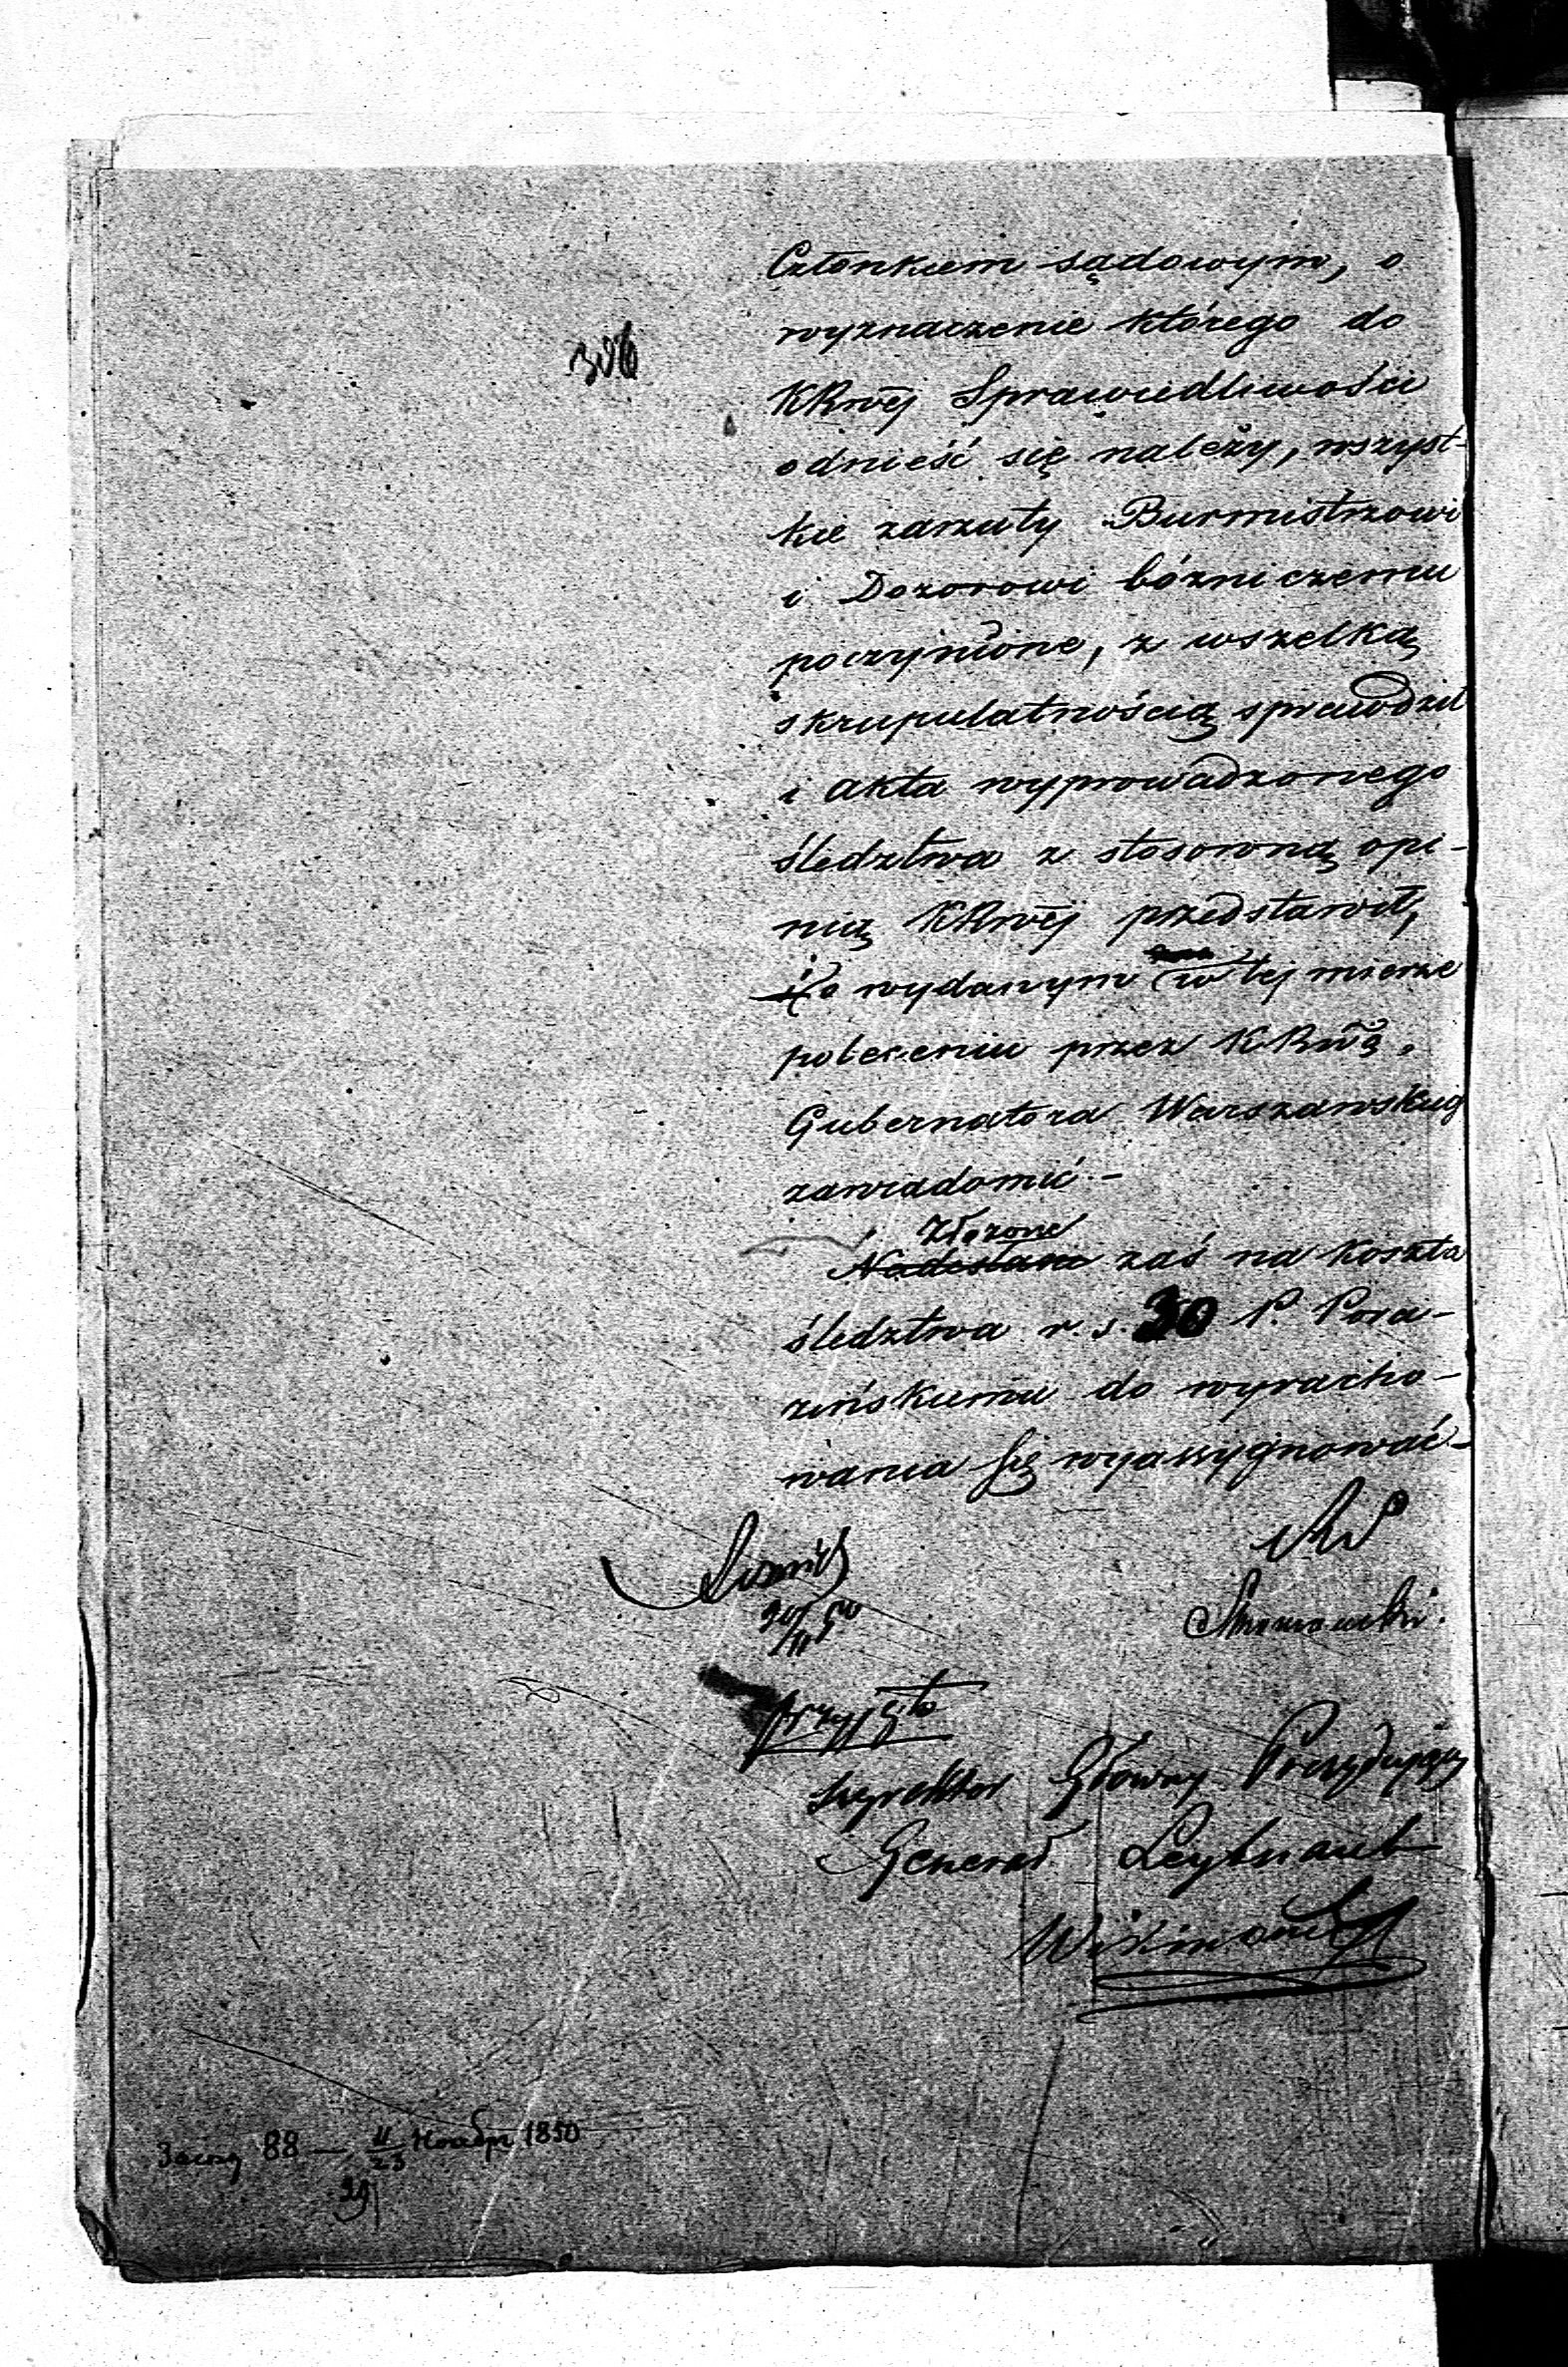 306
Członkiem sądowym, o
wyznaczenie którego do
KRwéj Sprawiedliwości
odnieść się należy, wszyst-
kie zarzuty Burmistrzowi
i Dozorowi bózniczemu
poczynione, z wszelką
skrupulatnością sprawdził
i akta wyprowadzonego
śledztwa z stosowną opi-
nią KRwéj przedstawił,
o wydanym w tej mierze
poleceniu przez KRwą,
Gubernatora Warszawskieg
zawiadomić -
złożone
Nadesłane zaś na koszta
śledztwa r. s. 30 P. Pora-
zińskiemu do wyracho-
wania się wyassygnować -
30/11 50
przyjęto
Dyrektor Główny Prezydujący
General Leytnant
Wikinski
88 — 11/23 Ноября 1850
29